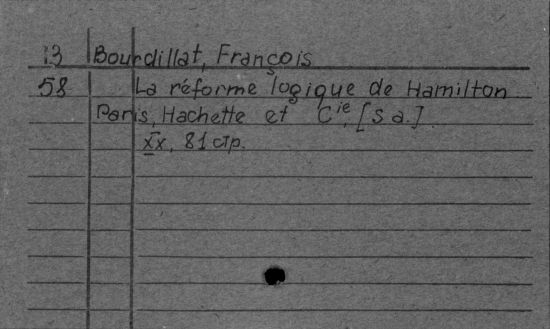 13 Bourdillat, François
58 La réforme logique de Hamilton
Paris, Hachette et Cie, [s a.]
XX, 81 стр.